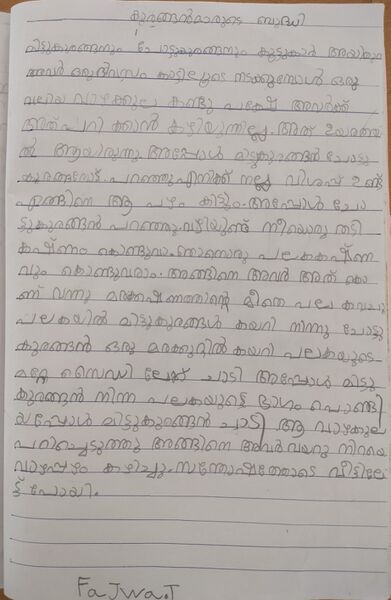 കുരങ്ങൻമാരുടെ ബുദ്ധി
മിട്ടുകുരങ്ങനും ചോട്ടുകുരങ്ങനും കൂട്ടുകാർ ആയിരുന്നു
അവർ ഒരു ദിവസം കാട്ടിലൂടെ നടക്കുമ്പോൾ ഒരു
വലിയ വാഴക്കുല കണ്ടു പക്ഷേ അവർക്ക്
അത് പറിക്കാൻ കഴിയുന്നില്ല. അത് ഉയരത്തി
ൽ ആയിരുന്നു. അപ്പോൾ മിട്ടുകുരങ്ങൻ ചോട്ടു
കുരങ്ങനോട് പറഞ്ഞു എനിക്ക് നല്ല വിശപ്പ് ഉണ്ട്
എങ്ങിനെ ആ പഴം കിട്ടും. അപ്പോൾ ചോ
ട്ടുകുരങ്ങൻ പറഞ്ഞു. വഴിയുണ്ട് നീയൊരു തടി
കഷ്ണം കൊണ്ടുവാ. ഞാനൊരു പലകകഷ്ണ
വും കൊണ്ടുവരാം. അങ്ങിനെ അവർ അത് കൊ
ണ്ട് വന്നു മരക്കഷണത്തിന്റെ മീതെ പലക വെച്ചു
പലകയിൽ മിട്ടുകുരങ്ങൾ കയറി നിന്നു ചോട്ടു
കുരങ്ങൻ ഒരു മരക്കുറ്റിൽ കയറി പലകയുടെ
മറ്റേ സൈഡിലേക്ക് ചാടി അപ്പോൾ മിട്ടു
കുരങ്ങൻ നിന്ന പലകയുടെ ഭാഗം പൊങ്ങി
യപ്പോൾ മിട്ടുകുരങ്ങൻ ചാടി ആ വാഴക്കുല
പറിച്ചെടുത്തു അങ്ങിനെ അവർ വയറു നിറയെ
വാഴപ്പഴം കഴിച്ചു. സന്തോഷത്തോടെ വീട്ടിലേ
ട്ട് പോയി.
FaJwa.T